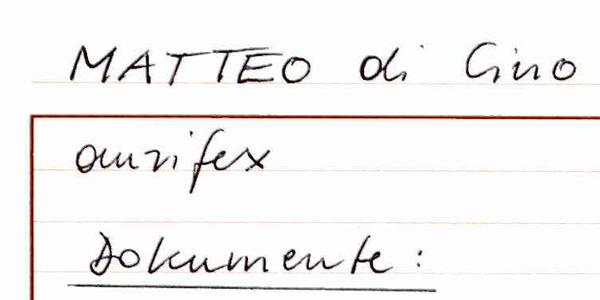 MATTEO di Gino
aurifex
Dokumente: